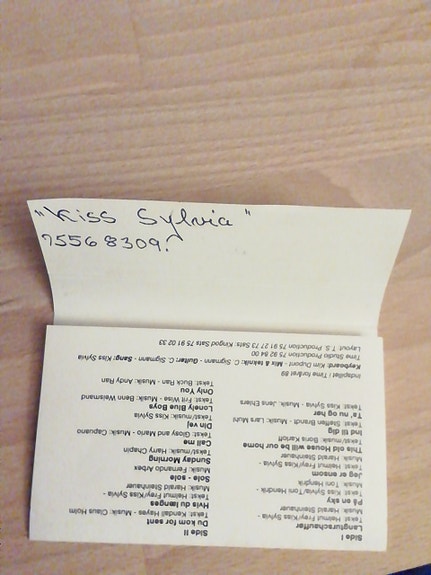 "Kiss Sylvia"
75568309.
Side I
Langturschauffør
Tekst: Helmut Frey/Kiss Sylvia -
Musik: Harald Steinhauer
På en sky
Tekst: Kiss Sylvia/Toni Hendrik -
Musik: Toni Hendrik
Jeg er ensom
Tekst: Helmut Frey/Kiss Sylvia
Musik: Harald Steinhauer
This old House will be our home
Tekst/musik: Boris Kardoff
Ind til dig
Tekst: Steffen Brandt - Musik: Lars Muhl
Ta' nu og hør
Tekst: Kiss Sylvia - Musik: Jens Ehlers
Side II
Du kom for sent
Tekst: Kendal Hayes - Musik: Claus Holm
Hvis du længes
Tekst: Helmut Frey/Kiss Sylvia -
Musik: Harald Steinhauer
Sola - sola
Musik: Fernando Arbex
Sunday Morning
Tekst/musik: Harry Chapin
Call me
Tekst: Giosy and Mario - Musik: Capuano
Din vej
Tekst/musik: Kiss Sylvia
Lonely Blue Boys
Tekst: Fred Wise - Musik: Benn Weismand
Only You
Tekst: Buck Ran - Musik: Andy Ran
Indspillet i Time foråret 89
Keyboard: Kim Dupont - Mix & teknik: C. Sigmann - Guitar: C. Sigmann - Sang: Kiss Sylvia
Time Studio Production 75 92 84 00
Layout: T.S. Production 75 91 27 73 Sats: Kingod Sats 75 91 02 33